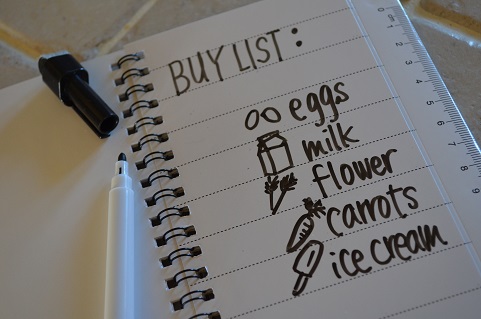 BUY LIST:
eggs
milk
flower
carrots
ice cream
0
1
2
3
4
5
6
7
8
9